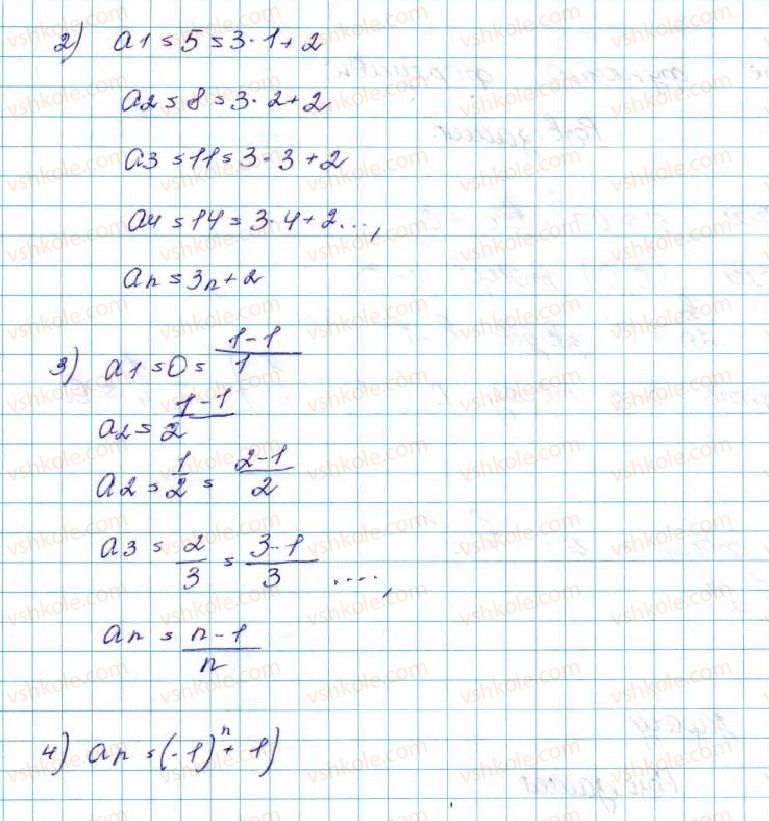 2) a1 = 5 = 3·1+2
a2 = 8 = 3·2+2
a3 = 11 = 3·3+2
a4 = 14 = 3·4+2...,
an = 3n+2
3) a1 = 0 = (1-1)/1
a2 = (1-1)/2
a2 = 1/2 = (2-1)/2
a3 = 2/3 = (3-1)/3 ....,
an = (n-1)/n
4) an = (-1)^n + 1)
vshkole.com